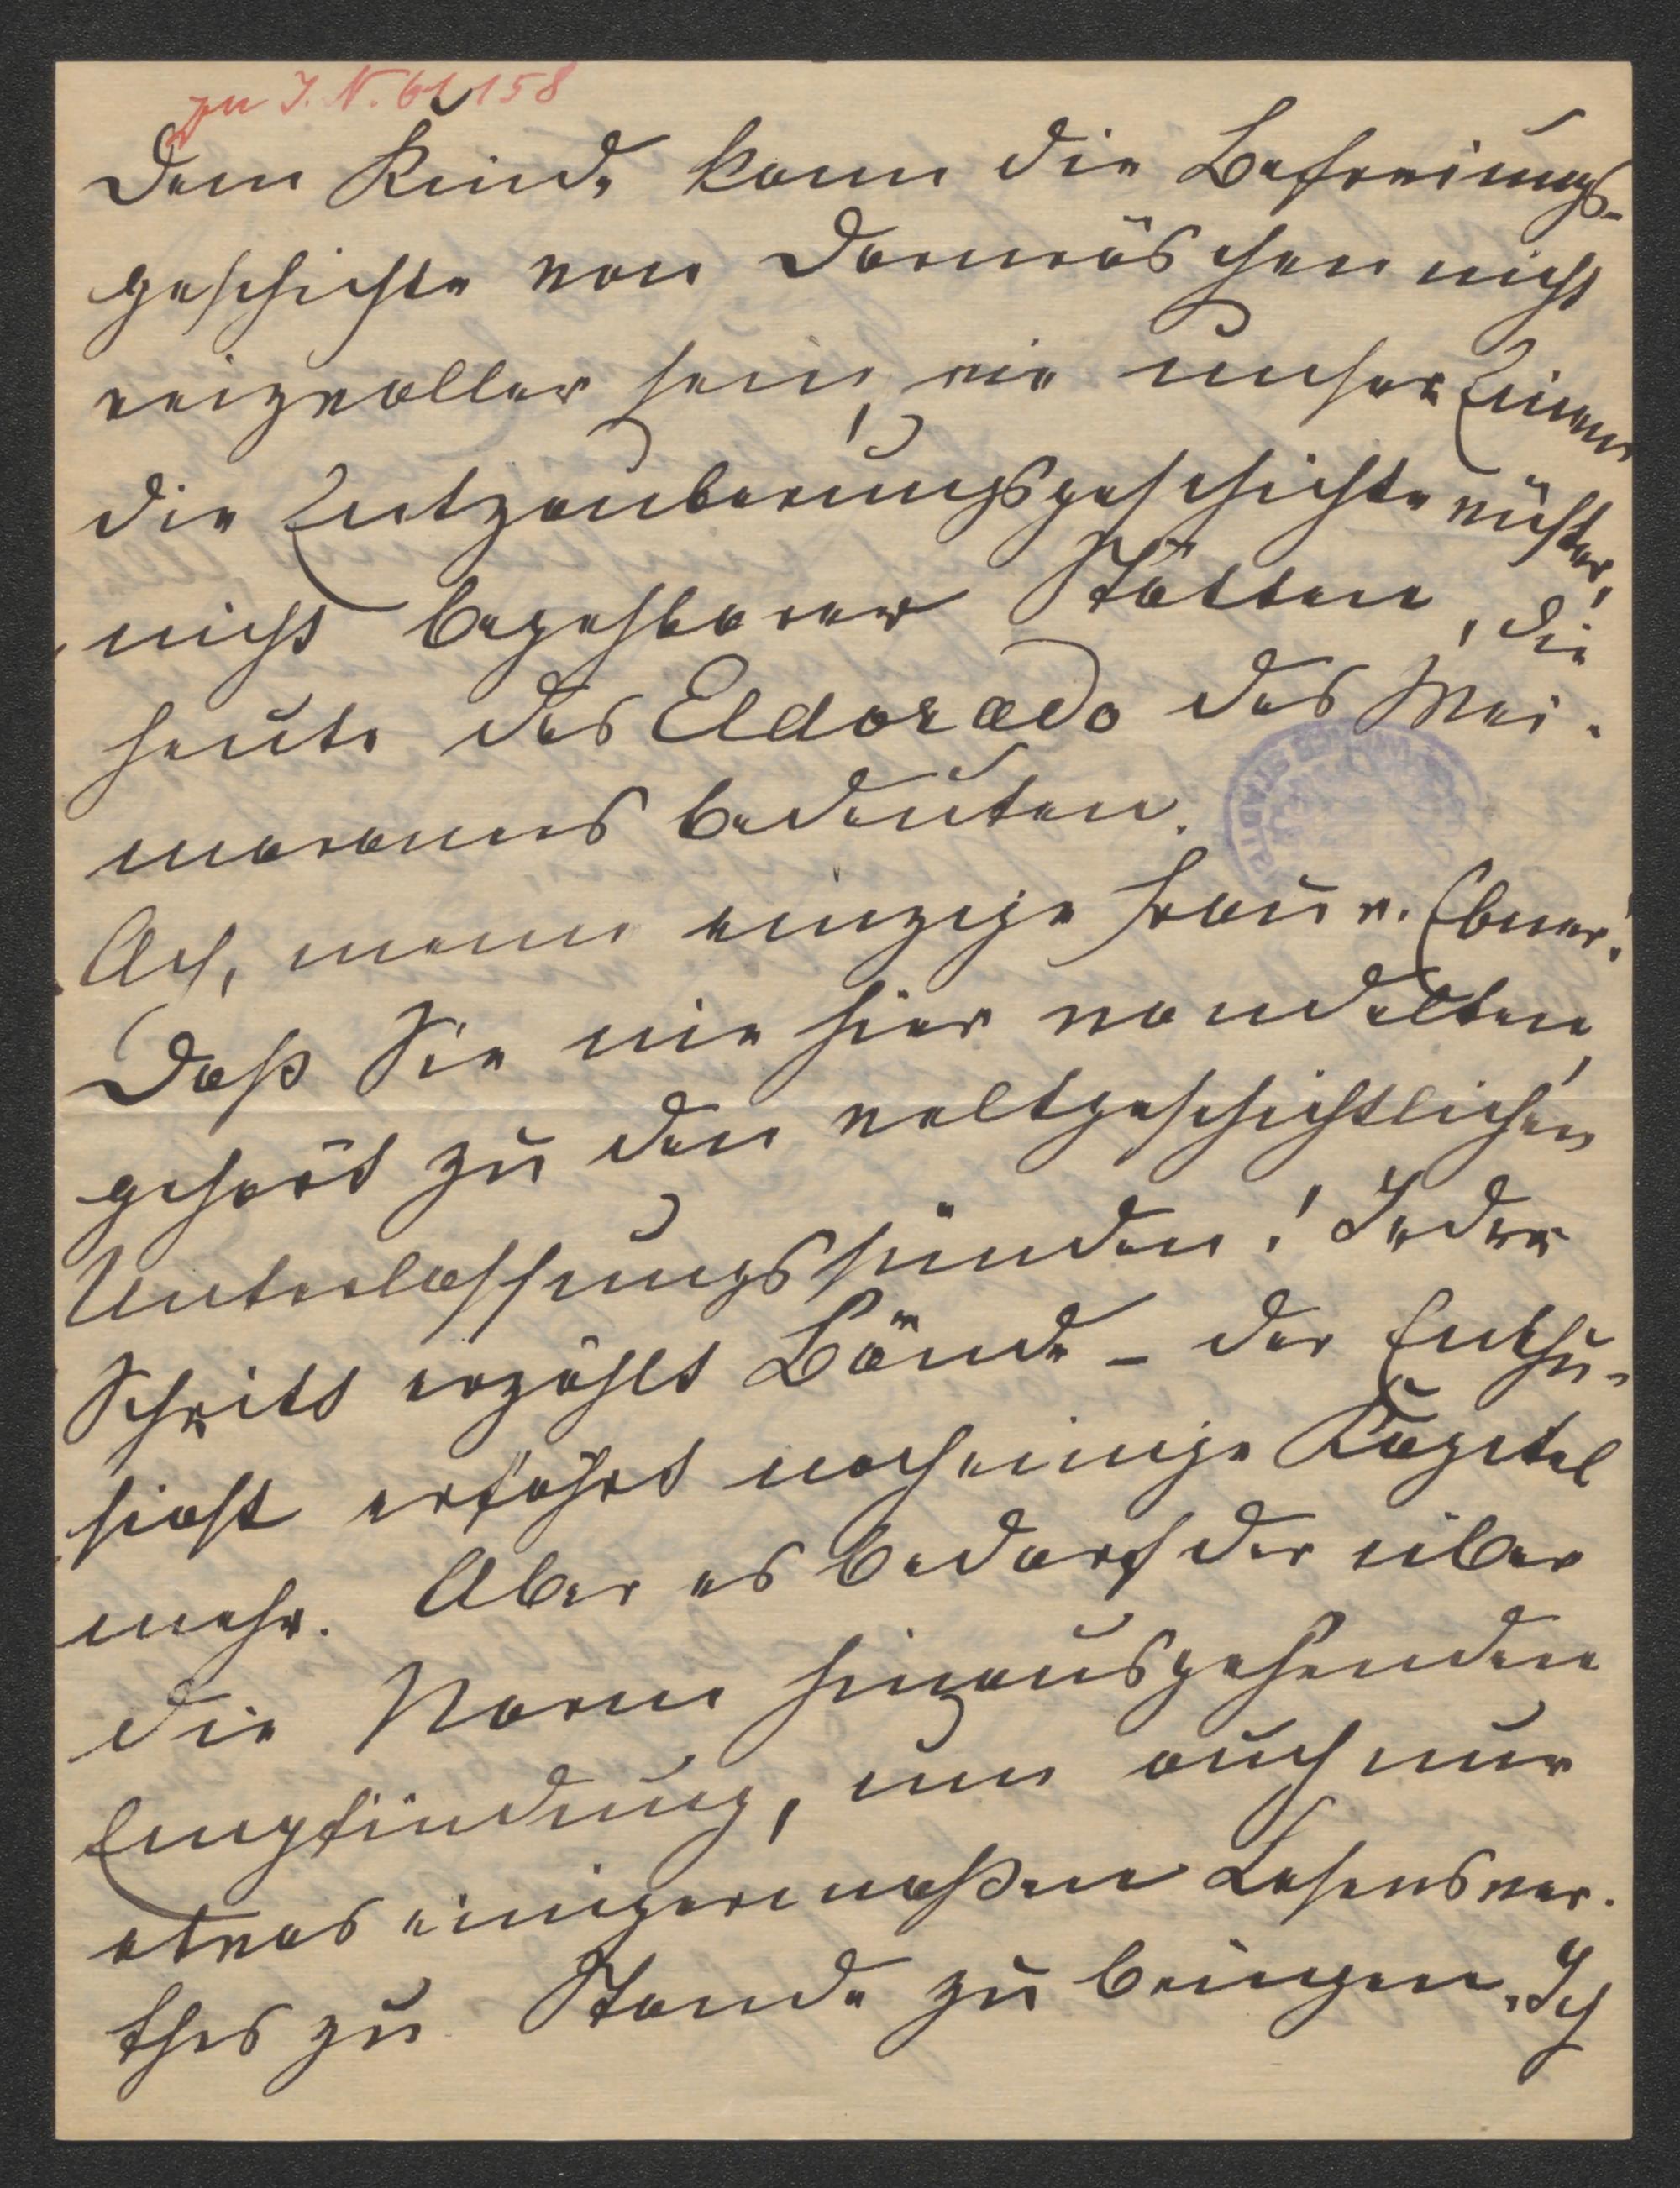 zu I. N. 61158
Dem Kinde kann die Befreiungs-
geschichte von Dornröschen nicht
reizvoller sein, wie unser Einem
die Entzauberungsgeschichte wüster,
nicht begehbarer Stätten, die
heute das Eldorado des Mei-
maranns bedeuten.
Ach, meine einzige Frau v. Ebner!
Daß Sie nie hier wandelten,
gehört zu den weltgeschichtlichen
Unterlassungssünden! Jeder
Schritt erzählt Bände – der Enthu-
siast erfährt noch einige Kapitel
mehr. Aber es bedarf der über
die Norm hinausgehenden
Empfindung, um auch nur
etwas einigermaßen Lesenswer-
thes zu Stande zu bringen. Ich